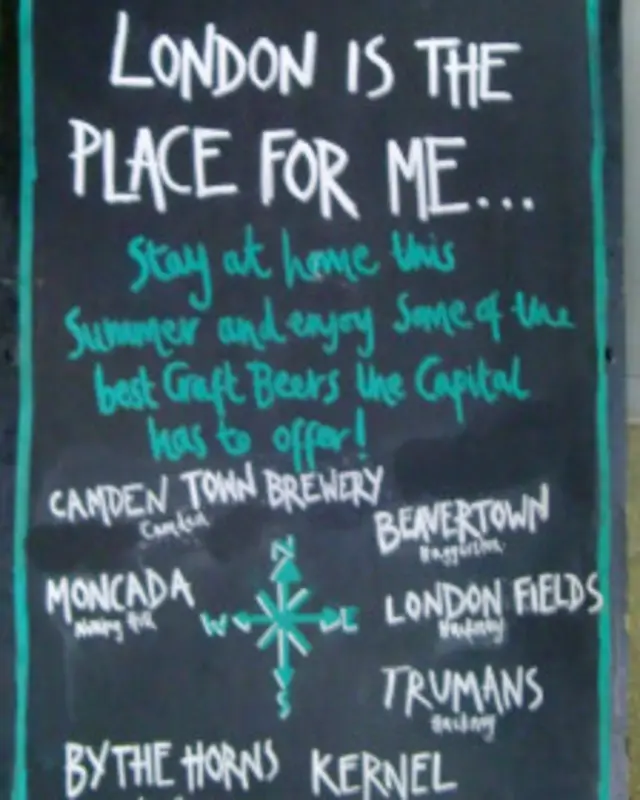 LONDON IS THE
PLACE FOR ME...
Stay at home this
Summer and enjoy Some of the
best Craft Beers the Capital
has to offer!
CAMDEN TOWN BREWERY
Camden
BEAVERTOWN
Haggerston
N
MONCADA
Notting Hill
W E
LONDON FIELDS
Hackney
S
TRUMANS
Hackney
BY THE HORNS KERNEL